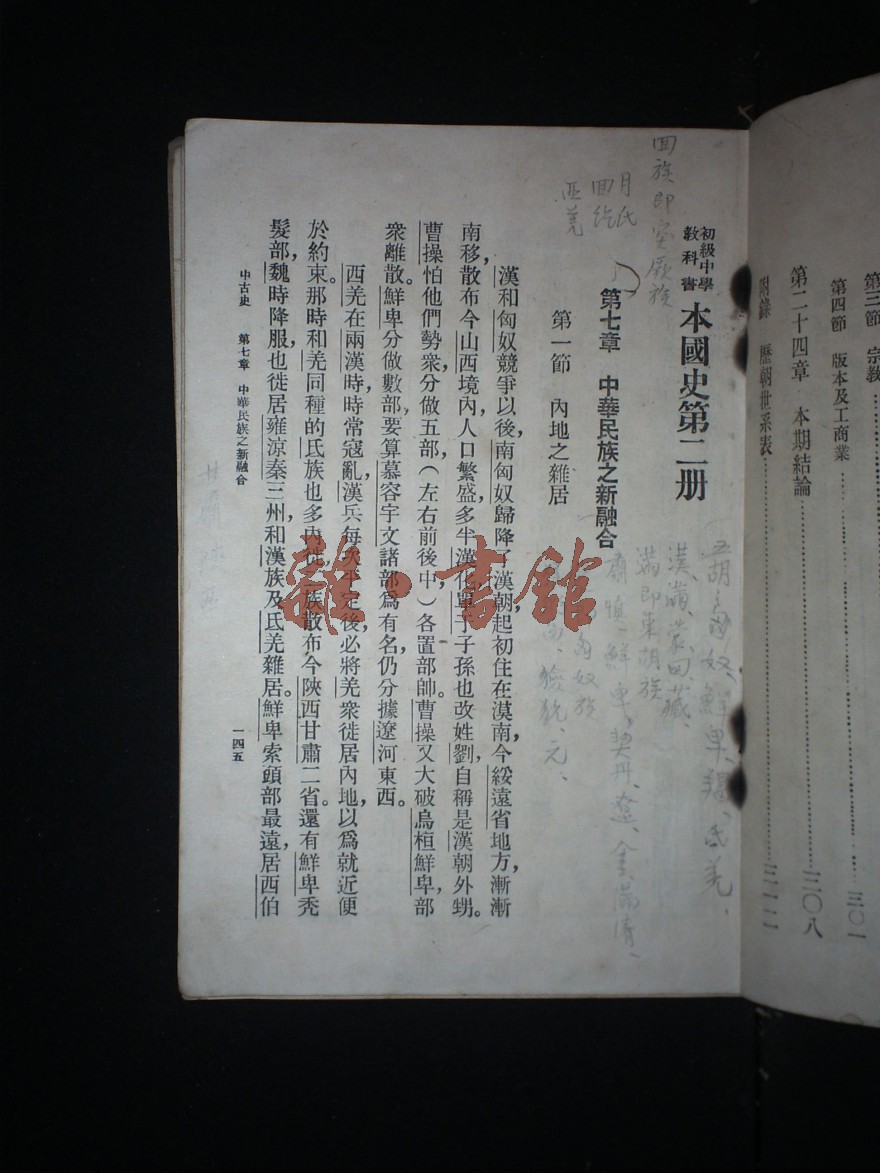 第三節　宗教……三〇一
第四節　版本及工商業
第二十四章　本期結論……三〇八
附錄　歷朝世系表……三一一
初級中學
教科書
本國史第二册
第七章　中華民族之新融合
第一節　內地之雜居
漢和匈奴競爭以後，南匈奴歸降了漢朝，起初住在漠南，今綏遠省地方，漸漸
南移，散布今山西境內，人口繁盛，多半漢化，單于子孫也改姓劉，自稱是漢朝外甥。
曹操怕他們勢衆，分做五部，（左右前後中，）各置部帥。曹操又大破烏桓鮮卑，部
衆離散。鮮卑分做數部，要算慕容宇文諸部爲有名，仍分據遼河東西。
西羌在兩漢時，時常寇亂，漢兵每次平定後，必將羌衆徙居內地，以爲就近便
於約束。那時和羌同種的氐族也多內徙，族散布今陝西甘肅二省。還有鮮卑禿
髮部，魏時降服，也徙居雍涼秦三州，和漢族及氐羌雜居。鮮卑索頭部最遠，居西伯
中古史　第七章　中華民族之新融合
一四五
回族即突厥族
月氏
回紇
西羌
五胡：匈奴、鮮卑、羯、氐、羌、
漢、滿、蒙、回、藏、
滿即東胡族
肅慎、鮮卑、契丹、遼、金、滿清、
匈奴族
獫狁、元、
雜·書館